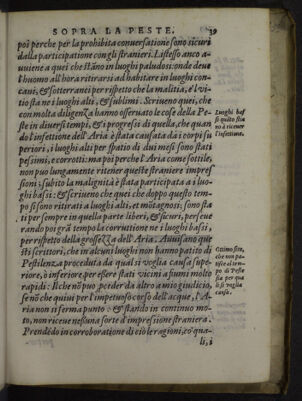 SOPRA LA PESTE. 39
poi perche per la prohibita conuersatione sono sicuri
dalla participatione con gli stranieri. L'istesso anco a-
uuiene a quei che stāno in luoghi paludosi: onde deue
l'huomo all'hora ritirarsi ad habitare in luoghi con-
caui, & sotterranei per rispetto che la malitia, e'l vi-
tio sta ne i luoghi alti, & sublimi. Scriueno quei, che
con molta diligenza hanno osseruato le cose della Pe-
ste in diuersi tempi, & i progressi di quella, che quan-
do l'infettione dell'Aria è stata causata da i corpi su
periori, i luoghi alti per spatio di dui mesi sono stati
pessimi, e corrotti: ma poi perche l'Aria come sottile,
non può lungamente ritener queste straniere impres
sioni; subito la malignità è stata participata a i luo-
ghi bassi: & scriueno che quei che doppo questo tem-
po si sono ritirati a luoghi alti, et mōtagnosi, sono sta
ti per sempre in quella parte liberi, & sicuri, perseue
rando poi grā tempo la corruttione ne i luoghi bassi,
per rispetto della grossezza dell'Aria. Auuisano que
sti scrittori, che in alcuni luoghi non hanno patito di
Pestilenza proceduta da qual si voglia causa supe-
riore, ò inferiore per essere stati vicini a fiumi molto
rapidi: Il che nō puo proceder da altro a mio giudicio,
se nō che quiui per l'impetuoso corso dell'acque, l'A-
ria non si ferma punto: & stando in continuo mo-
to, non riceue nessuna sorte d'impressione straniera.
Prendēdo in corroboratione di ciò le ragioni, cō qua-
li, i
Luoghi bas
si quāto stia
no à riceuer
l'infettione.
Ottimo sito,
che non pa-
tisce altem-
po di Peste
sia per qua
si voglia
causa.